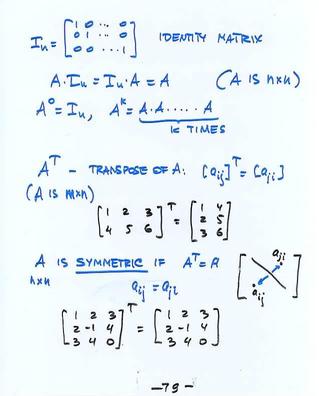 Iₙ = [1 0 ... 0; 0 1 ... 0; 0 0 ... 1] IDENTITY MATRIX
A·Iₙ = Iₙ·A = A (A IS n×n)
A⁰ = Iₙ, Aᵏ = A·A·....·A
K TIMES
Aᵀ - TRANSPOSE OF A: [aᵢⱼ]ᵀ = [aⱼᵢ]
(A IS m×n)
[1 2 3; 4 5 6]ᵀ = [1 4; 2 5; 3 6]
A IS SYMMETRIC IF Aᵀ = A
n×n
aᵢⱼ = aⱼᵢ
aⱼᵢ
aᵢⱼ
[1 2 3; 2 -1 4; 3 4 0]ᵀ = [1 2 3; 2 -1 4; 3 4 0]
-79-